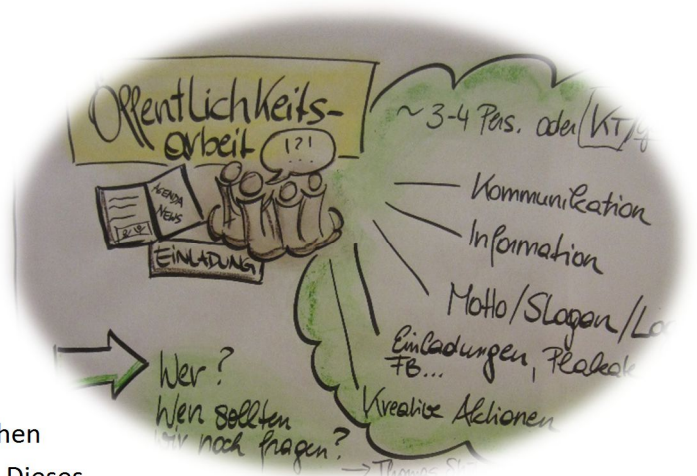 Öffentlichkeits-
arbeit
!?!
AGENDA
NEWS
EINLADUNG
~ 3-4 Pers. oder KT/
Kommunikation
Information
Motto/Slogan/Lo
Einladungen, Plakate
FB...
Kreative Aktionen
Wer?
Wen sollten
wir noch fragen?
→ Thomas
hen
Dieses